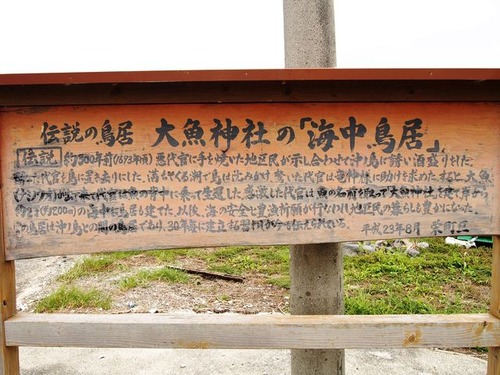 伝説の鳥居 大魚神社の「海中鳥居」
伝説 約300年前(1693年頃)悪代官に手を焼いた地区民が示し合わせて沖ノ島に誘い酒盛りをした
代官を島に置き去りにした。満ちてくる潮で島は沈みかけ、驚いた代官は竜神様に助けを求めたすると、大魚
乗って生還した。感激した代官は魚の名前を取って大魚神社を建て岸から
約200m)の海中に鳥居を建てた。以後、海の安全と豊漁祈願が行なわれ地区民の暮らしも豊かになった。
の鳥居は沖ノ島との間の鳥居であり、30年毎に建立する習わし
平成23年8月 栄町三